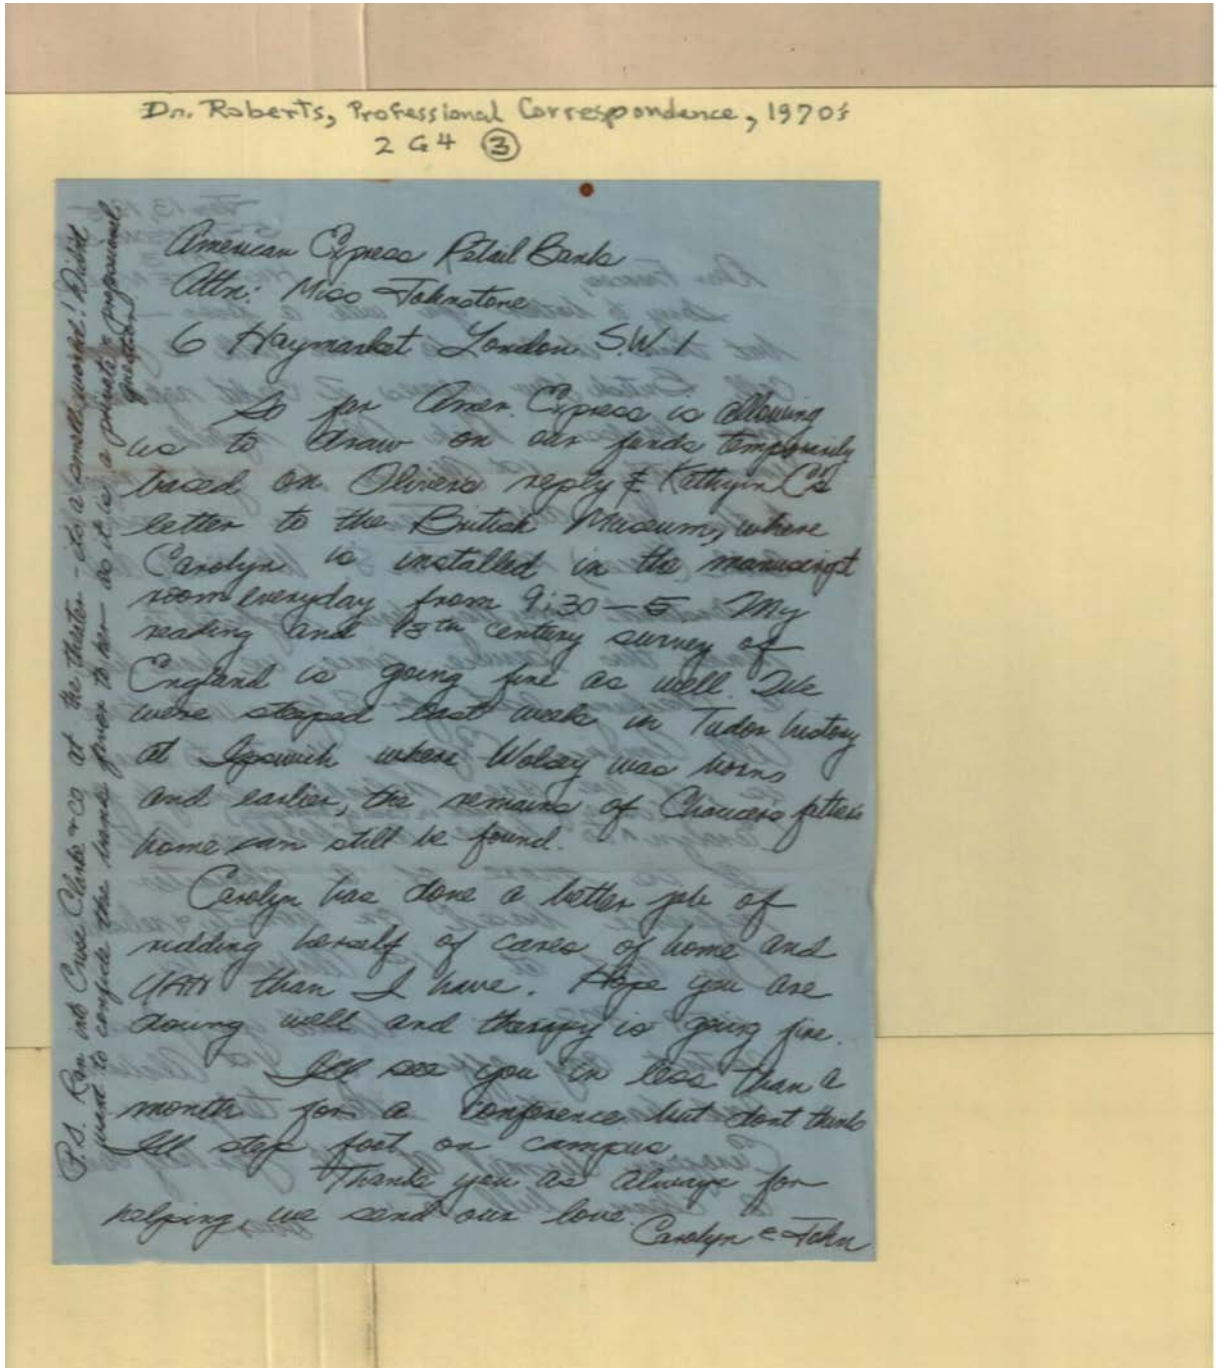 Dr. Roberts, Professional Correspondence, 1970s
2 G4 3
American Express Retail Bank
Attn: Miss Johnstone
6 Haymarket London S.W. 1
So far Amer. Express is allowing
us to draw on our funds temporarily
based on Olivers reply & Kathyrn C's
letter to the British Museum, where
Carolyn is installed in the manuscript
room everyday from 9:30-5 My
reading and 18th century survey of
England is going fine as well. We
were steeped last week in Tudor history
at Ipswich where Wolsey was born
and earlier, the remains of Chaucers fathers
home can still be found.
Carolyn has done a better job of
ridding herself of cares of home and
than I have. Hope you are
doing well and therapy is going fine.
I'll see you in less than a
month for a conference but dont think
I'll step foot on campus
Thank you as always for
helping, we send our love.
Carolyn & John
P.S. Ran into Clarke & co at the theater - its a small world! Didnt
want to confide the bank favor to her - as it is a private & professional
question